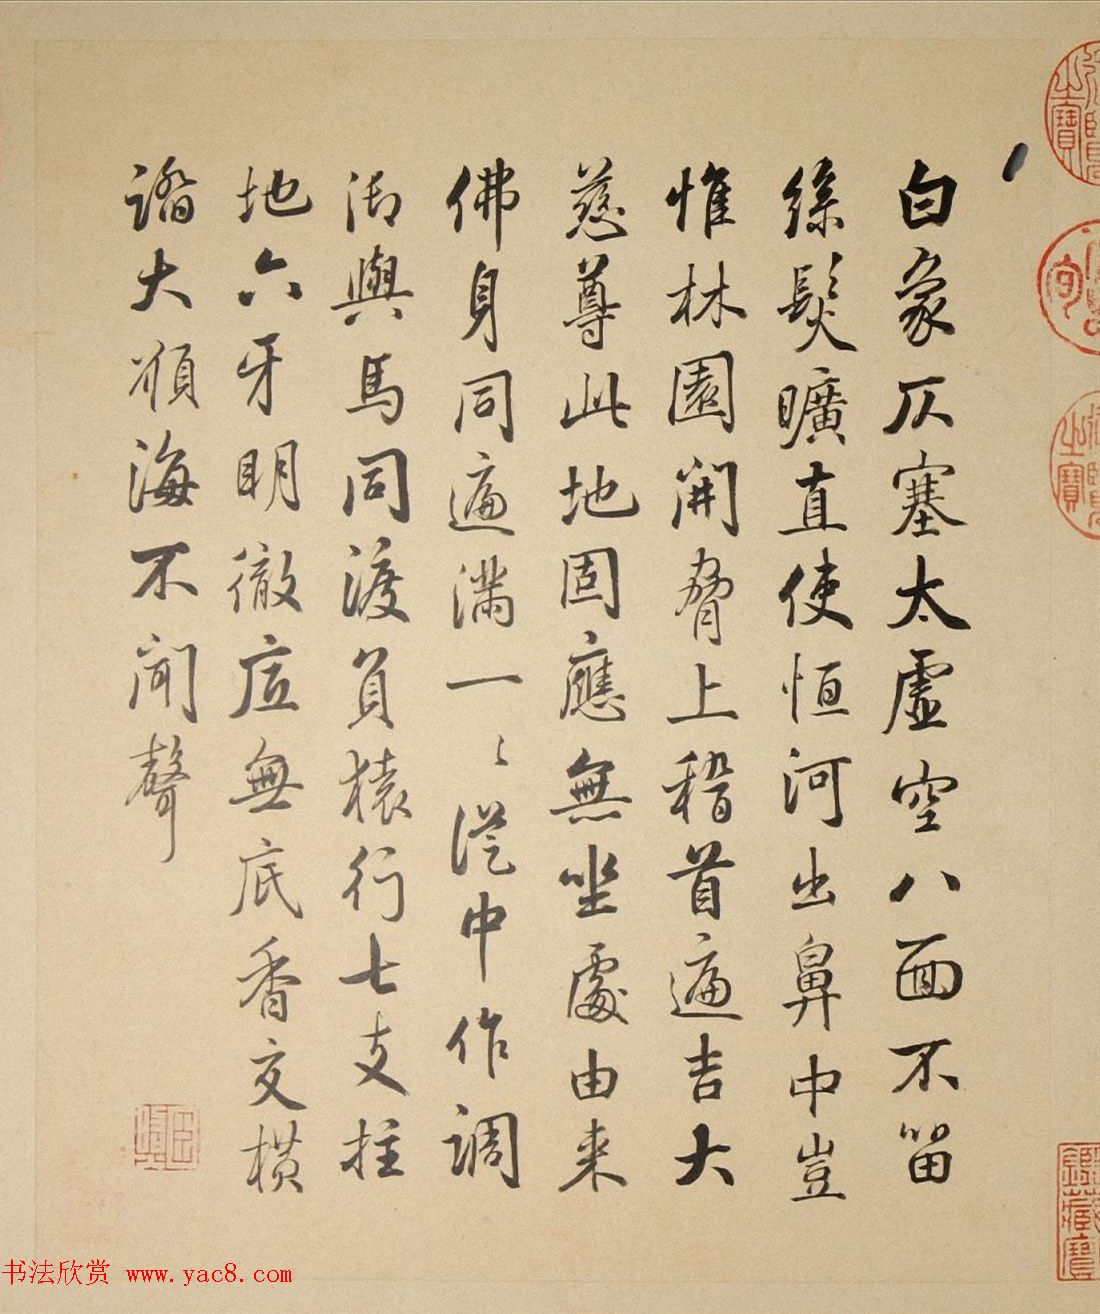 白象仄塞太虛空八面不留
絲髮曠直使恒河出鼻中豈
惟林園開脅上稽首遍吉大
慈尊此地固應無坐處由來
佛身同遍滿一〻從中作調
御與馬同渡負猿行七支拄
地六牙明徹底無底香交橫
諳大順海不聞聲
書法欣賞 www.yac8.com